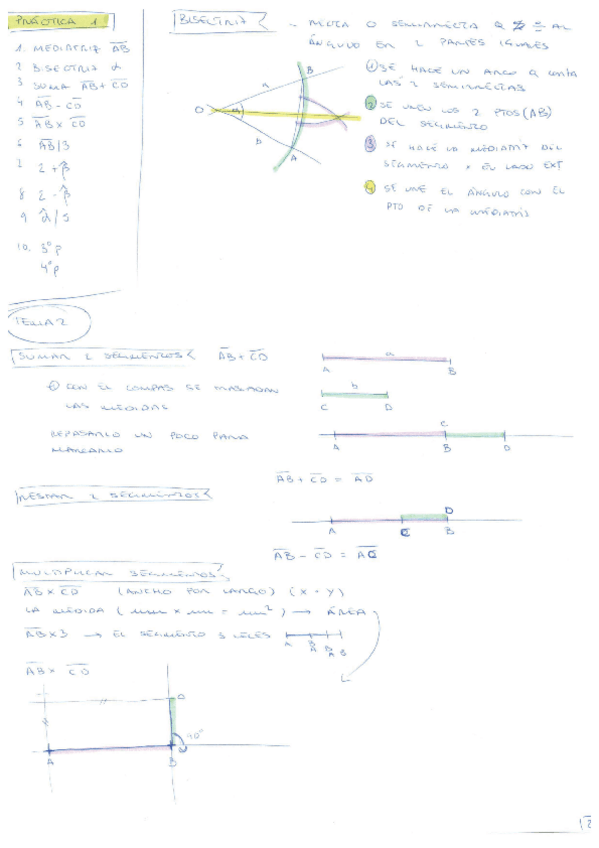 PRÁCTICA 1
1. MEDIATRIZ AB
2 BISECTRIZ α
3 SUMA AB + CD
4 AB - CD
5 AB x CD
6 AB/3
7 2 + β
8 2 - β
9 α/5
10. 3º p
4º p
BISECTRIZ
- RECTA O SEMIRRECTA Q ÷ AL
ÁNGULO EN 2 PARTES IGUALES
① SE HACE UN ARCO Q CORTA
LAS 2 SEMIRRECTAS
② SE UNEN LOS 2 PTOS (AB)
DEL SEGMENTO
③ SE HACE LA MEDIATRIZ DEL
SEGMENTO x EL LADO EXT
④ SE UNE EL ÁNGULO CON EL
PTO DE LA MEDIATRIZ
O
α
B
A
TEMA 2
SUMAR 2 SEGMENTOS AB + CD
① CON EL COMPAS SE TRASLADAN
LAS MEDIDAS
REPASARLO UN POCO PARA
MARCARLO
a
A B
b
C D
C
A B D
AB + CD = AD
RESTAR 2 SEGMENTOS
D
A C B
AB - CD = AC
MULTIPLICAR SEGMENTOS
AB x CD (ANCHO POR LARGO) (X · Y)
LA MEDIDA (mm x mm = mm²) → ÁREA
AB x 3 → EL SEGMENTO 3 VECES
A B A B A B
AB x CD
D
90°
A B
2